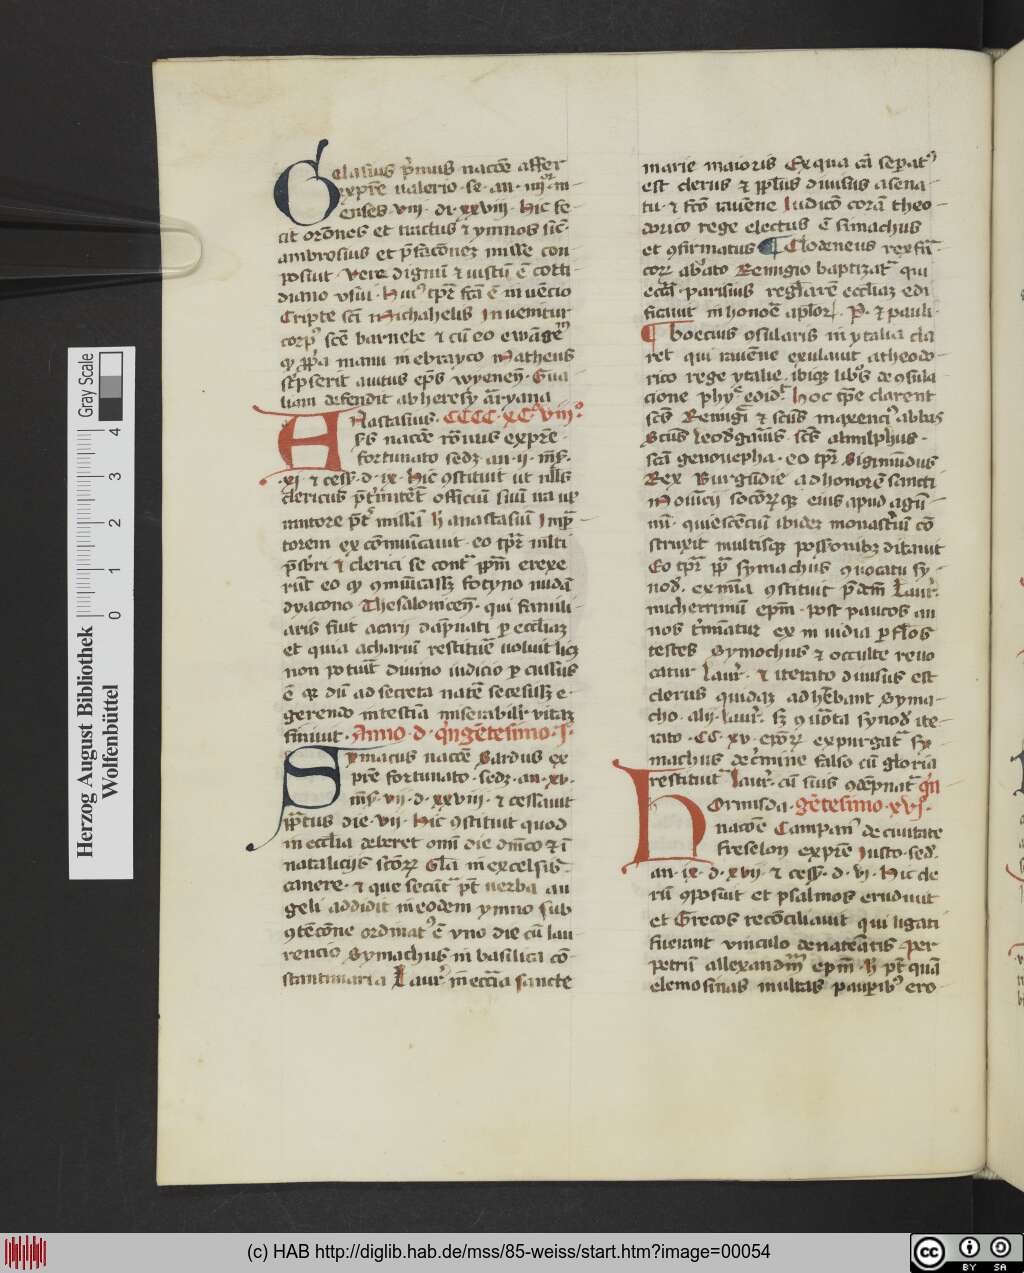 Gelasius p̄mus nacōe affer
exp̄re valerio · se · an · iiijor · m
enses · viij · di · xxviij · Hic fe
cit orōnes et tractus ⁊ ymnos sic̄
ambrosius et p̄facōnes mille con
posuit · Vere dignū ⁊ iustū ē cotti
diano vsui · Hui9 tp̄re fc̄a ē in vēcio
Cripte sc̄i Michahelis Inuenitur
corp9 sc̄e barnebe ⁊ cū eo ewāgem
manu in ebrayco Matheus
sc̄pserit auitus ep̄s wyenen̄ · Gua
liam defendit ab heresy arryana
Anastasius · CCCC · XC · viijo
nacōe rōnus exp̄re
fortunato sedꝫ · an · ij · m̄s ·
xj · ⁊ cess̄ · d · ix · Hic 9stituit ut null9
clericus officiū suū
Anastasiū Imp̄a
torem ex cōmūicauit · eo tp̄r m̄lti
p̄sbr̄i ⁊ clerici se cont̄ ip̄m erexe
rūt eo fotyno
dyacono Thesalonicen̄ · qui famili
aris fuit acacij dāpnati p ecclīaꝫ
et quia acharū restituē uoluit
non potuit diuino iudicio p cussus
ē qꝛ dū ad secreta nat̄e secessisꝫ e
gerendo intestīa miserabilit̄ vitaꝫ
finiuit · Anno · d · qn̄getesimo · j ·
Symacus nacōe Sardus ex
p̄re fortunato · sedꝫ · an · xv ·
m̄s · vij · d · xxviij · ⁊ cessauit
ep̄atus die · vij · Hic 9stituit quod
in ecclīa deberet omī die dn̄ico ⁊ ī
natalicijs sc̄orꝝ Glā in excelsis
canere · ⁊ que secūt̄ p̄t uerba an
geli addidit in eodem ymno sub
9tēcōne ordinat9 ē vno die cū lau
rencio Symachus in basilica cō
stantinaria Laur̄ in ecc̄ia sancte
marie maioris Ex qua cā sep̄at9
est clerus ⁊ ppl̄us diuisus a sena
tu · ⁊ fc̄o rauēne Iudicō corā theo
dorico rege electus ē simachus
et 9firmatus ¶ Clodeneus rex frā
corꝝ ab bt̄o Remigio baptizat̄ qui
eciā parisius regl̄arē eccliaꝫ edi
ficauit in honorē apl̄oꝝ · P̄ · ⁊ pauli ·
¶ boecius 9sularis in ytalia cla
ret qui rauēne exulauit a theodo
rico rege ytalie · ibiqꝫ libros de 9sola
cione phye edidit · Hoc tp̄e clarent
sc̄s Remigi9 ⁊ sc̄us maxenci9 abbas
Sc̄us leodegarius · sc̄s
sc̄a genouepha · eo tp̄r Sigimūdus
Rex Burgūdie ad honorē sancti
Mauricij sociorꝝqꝫ eius apud agū
num · quiescenciū ibidem monast̄iū cō
struxit multisqꝫ possessionibꝫ ditauit
Eo tp̄r pp̄ Symachus 9uocata sy
nod̄ · ex mīa 9stituit p̄dc̄m Laur̄
nucherrimū ep̄m · post paucos an
nos t̄minatur ex in uidia p flos
testes Symochus ⁊ occulte reuo
catur Laur̄ · ⁊ iterato diuisus est
clerus quidaꝫ adherebant Syma
cho · alij · laur̄ · sꝫ 9uōta synod̄ ite
rato · CC · xv · ep̄orꝝ expurgat̄ sy
machus de c̄mine falso cū gloria
restituit̄ Laur̄ · cū suis 9dēpnat̄ qn̄
Hormisda · getesimo · xvj ·
nacōe Campan9 de ciuitate
freselon exp̄re Iusto · sed̄ ·
an · ix · d · xvij · ⁊ cess̄ · d · vj · Hic cle
rū 9posuit et psalmos erudiuit
et Grecos reconciliauit qui ligati
fuerant vinculo de nateātis · per
petrū allexandrinū ep̄m · H p̄t quā
elemosinas multas paup̄ibꝫ ero
Herzog August Bibliothek
Wolfenbüttel
Gray Scale
0 1 2 3 4
(c) HAB http://diglib.hab.de/mss/85-weiss/start.htm?image=00054
cc BY SA